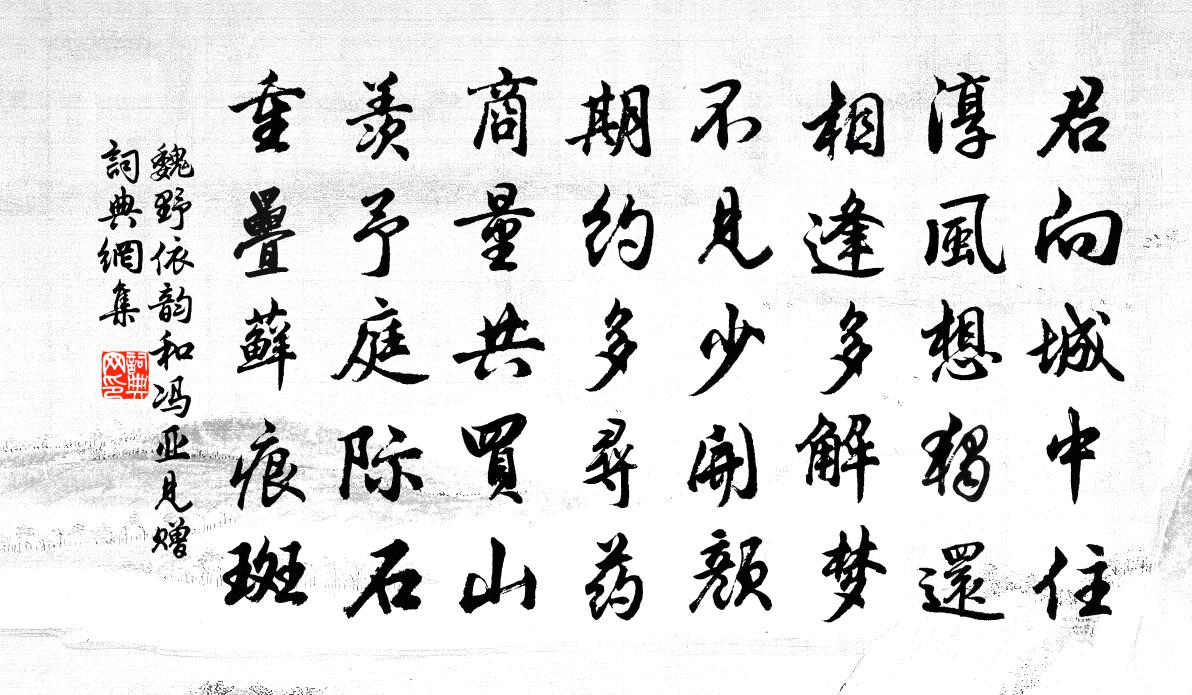 君向城中住
淳風想獨還
相逢多解梦
不見少開顏
期約多尋药
商量共買山
羨予庭际石
重疊蘚痕斑
魏野依韵和冯亚見赠
詞典網集
詞典网印